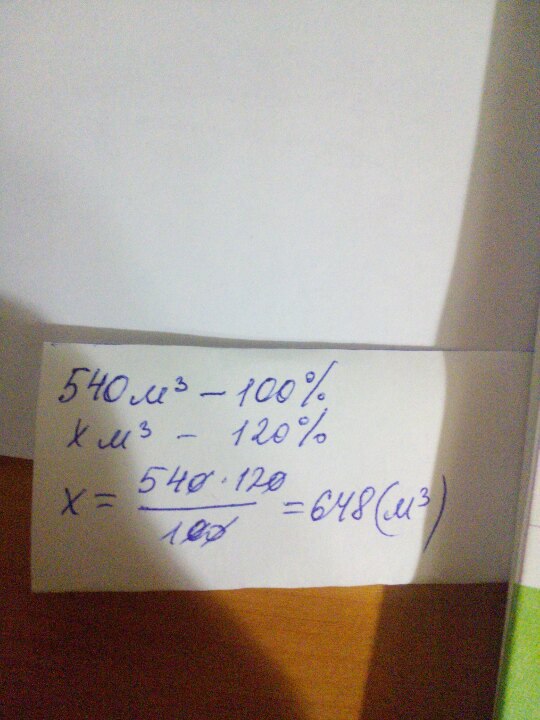 540 м³ – 100%
х м³ – 120%
х = 540 · 120 / 100 = 648 (м³)